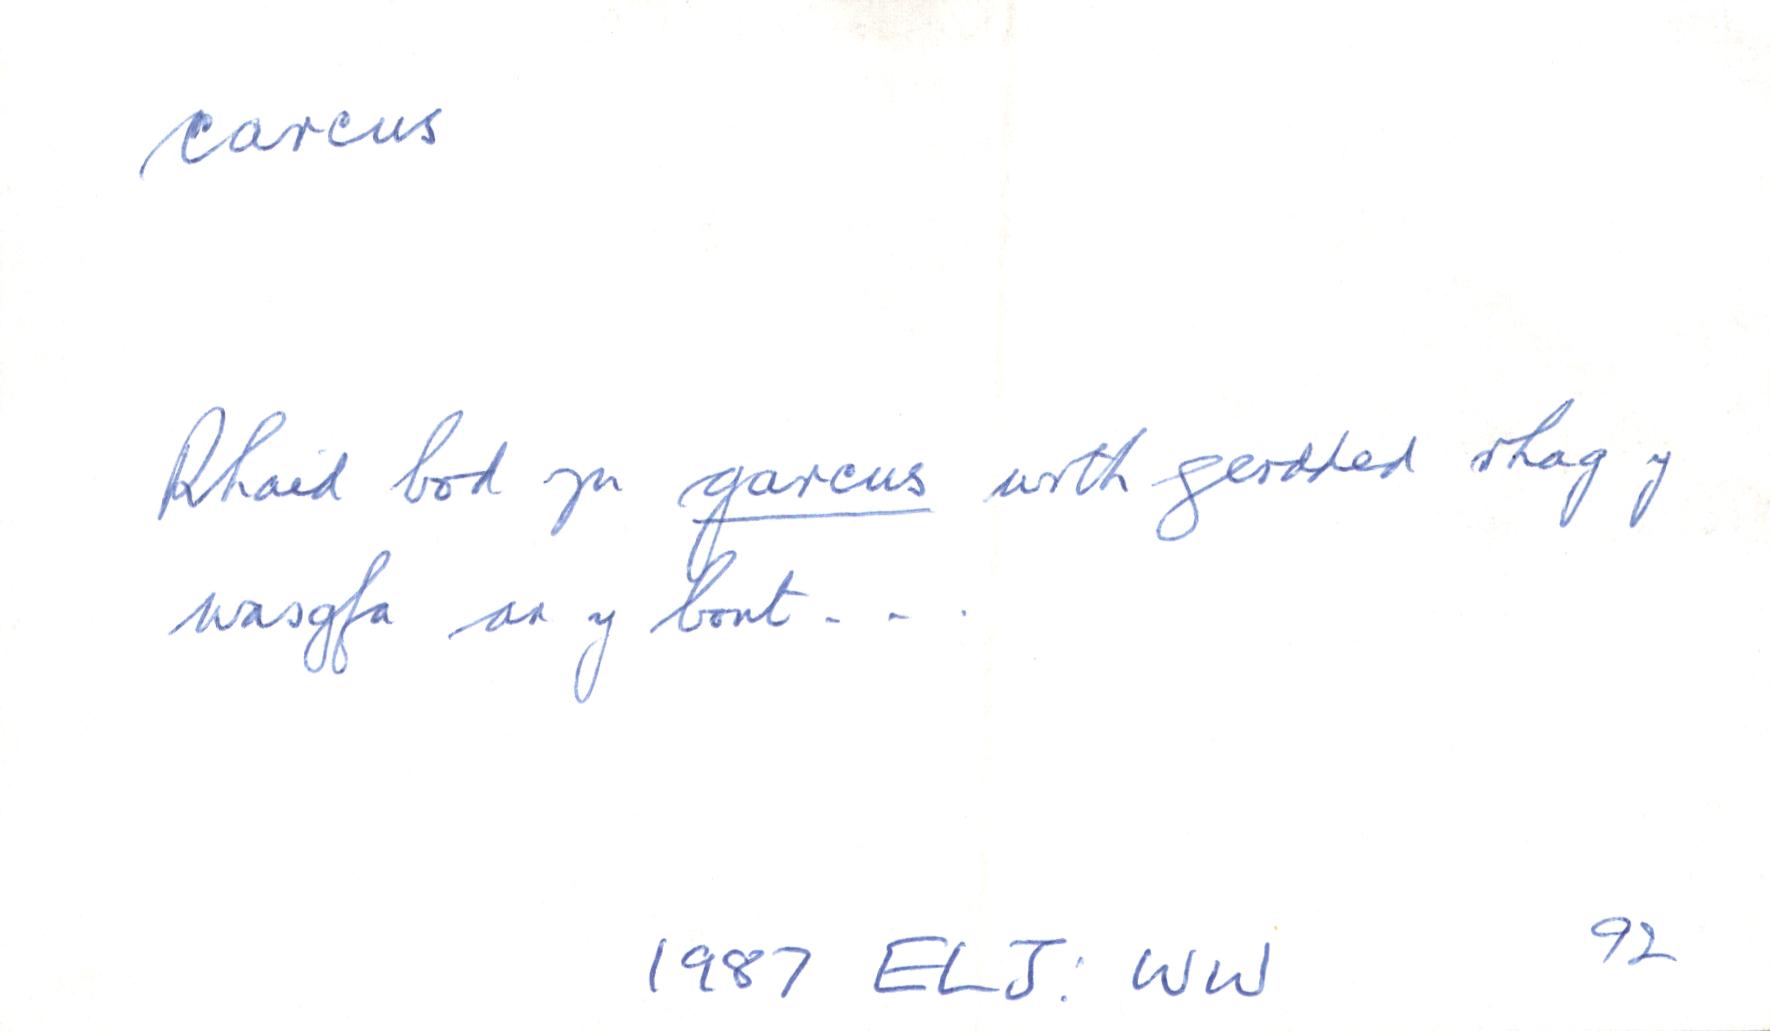 carcus
Rhaid bod yn garcus wrth gerdded rhag y
wasgfa ar y bont...
1987 ELJ: WW 92